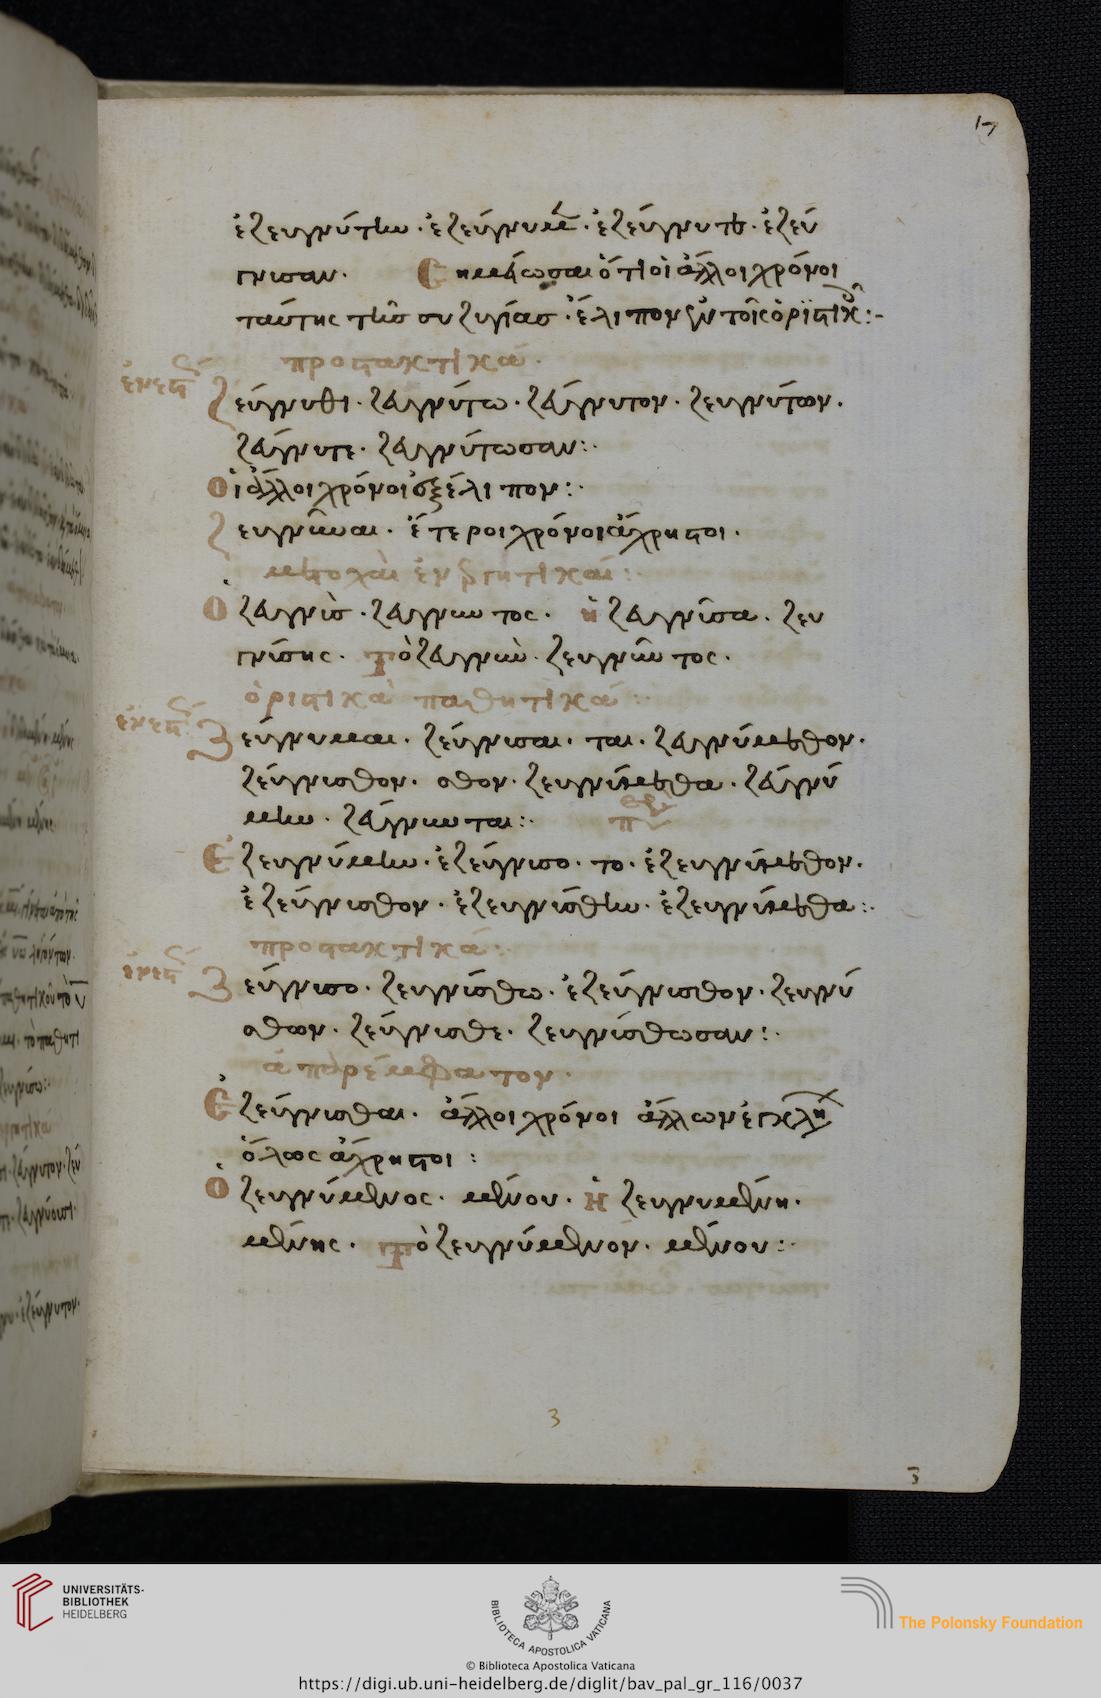 17
ἐζευγνύτην · ἐζεύγνυμεν · ἐζεύγνυτε · ἐζεύ
γνισαν · Σημείωσαι ὅτι οἱ ἄλλοι χρόνοι
ταύτης τῆς συζυγίας · ἔλιπον ἐν τοῖς ὁριστικοῖς :-
προστακτικά ·
ἐνεστ
ζεύγνυθι · ζευγνύτω · ζεύγνυτον · ζευγνύτων ·
ζεύγνυτε · ζευγνύτωσαν :·
Οἱ ἄλλοι χρόνοι ἐξέλιπον :·
ζευγνῦναι · ἕτεροι χρόνοι ἄχρηστοι ·
μετοχαὶ ἐνεργητικαί :
Ὁ ζευγνὺς · ζευγνύντος · ἡ ζευγνῦσα · ζευ
γνύσης · Τὸ ζευγνὺν · ζευγνῦντος ·
ὁριστικὰ παθητικά :·
ἐνεστ
Ζεύγνυμαι · ζεύγνισαι · ται · ζευγνύμεθον ·
ζεύγνισθον · σθον · ζευγνύμεθα · ζεύγνυ
μεν · ζεύγνυνται :·
Ἐζευγνύμην · ἐζεύγνισο · το · ἐζευγνύμεθον ·
ἐζεύγνισθον · ἐζευγνίσθην · ἐζευγνύμεθα :·
προστακτικά :·
ἐνεστ
Ζεύγνισο · ζευγνίσθω · ἐζεύγνισθον · ζευγνύ
σθων · ζεύγνισθε · ζευγνίσθωσαν :·
ἀπαρέμφατον ·
Ἐζεύγνισθαι · ἄλλοι χρόνοι ἄλλων ἐγκλη
ὅλως ἄχρηστοι :
Ὁ ζευγνύμενος · μένου · Ἡ ζευγνυμένη ·
μένης · Τὸ ζευγνύμενον · μένου :·
3
3
UNIVERSITÄTS-
BIBLIOTHEK
HEIDELBERG
BIBLIOTECA APOSTOLICA VATICANA
The Polonsky Foundation
© Biblioteca Apostolica Vaticana
https://digi.ub.uni-heidelberg.de/diglit/bav_pal_gr_116/0037